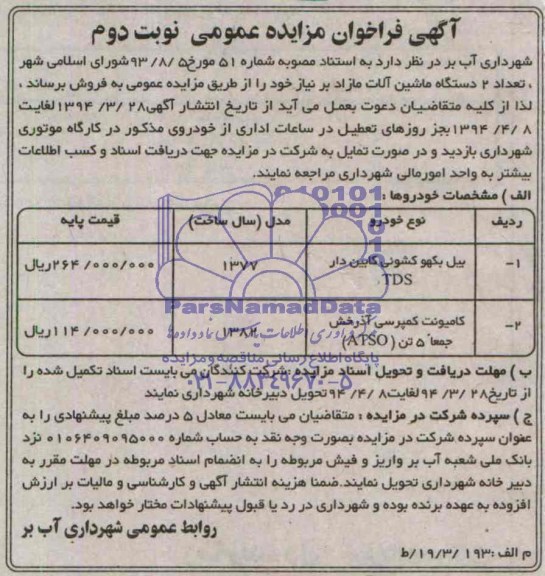 آگهی فراخوان مزایده عمومی نوبت دوم
شهرداری آب بر در نظر دارد به استناد مصوبه شماره ۵۱ مورخ۵ /۸/ ۹۳شورای اسلامی شهر
، تعداد ۲ دستگاه ماشین آلات مازاد بر نیاز خود را از طریق مزایده عمومی به فروش برساند ،
لذا از کلیه متقاضیان دعوت بعمل می آید از تاریخ انتشار آگهی۲۸ /۳/ ۱۳۹۴لغایت
۸ /۴/ ۱۳۹۴بجز روزهای تعطیل در ساعات اداری از خودروی مذکور در کارگاه موتوری
شهرداری بازدید و در صورت تمایل به شرکت در مزایده جهت دریافت اسناد و کسب اطلاعات
بیشتر به واحد امورمالی شهرداری مراجعه نمایند.
الف ) مشخصات خودروها :
ردیف نوع خودرو مدل (سال ساخت) قیمت پایه
۱- بیل بکهو کشویی کابین دار ۱۳۷۷ ۲۶۴/۰۰۰/۰۰۰ریال
TDS
۲- کامیونت کمپرسی آذرخش ۱۳۸۲ ۱۱۴/۰۰۰/۰۰۰ریال
جمعاً ۵ تن (ATSO)
ParsNamadData
پایگاه اطلاع رسانی مناقصه و مزایده
۰۲۱-۸۸۳۴۹۶۷۰-۵
ب ) مهلت دریافت و تحویل اسناد مزایده :شرکت کنندگان می بایست اسناد تکمیل شده را
از تاریخ۲۸ /۳/ ۹۴لغایت۸ /۴/ ۹۴تحویل دبیرخانه شهرداری نمایند
ج ) سپرده شرکت در مزایده : متقاضیان می بایست معادل ۵ درصد مبلغ پیشنهادی را به
عنوان سپرده شرکت در مزایده بصورت وجه نقد به حساب شماره ۰۱۰۶۴۰۹۰۹۵۰۰۰ نزد
بانک ملی شعبه آب بر واریز و فیش مربوطه را به انضمام اسناد مربوطه در مهلت مقرر به
دبیر خانه شهرداری تحویل نمایند.ضمنا هزینه انتشار آگهی و کارشناسی و مالیات بر ارزش
افزوده به عهده برنده بوده و شهرداری در رد یا قبول پیشنهادات مختار خواهد بود.
روابط عمومی شهرداری آب بر
م الف :۱۹۳ /۱۹/۳/ط